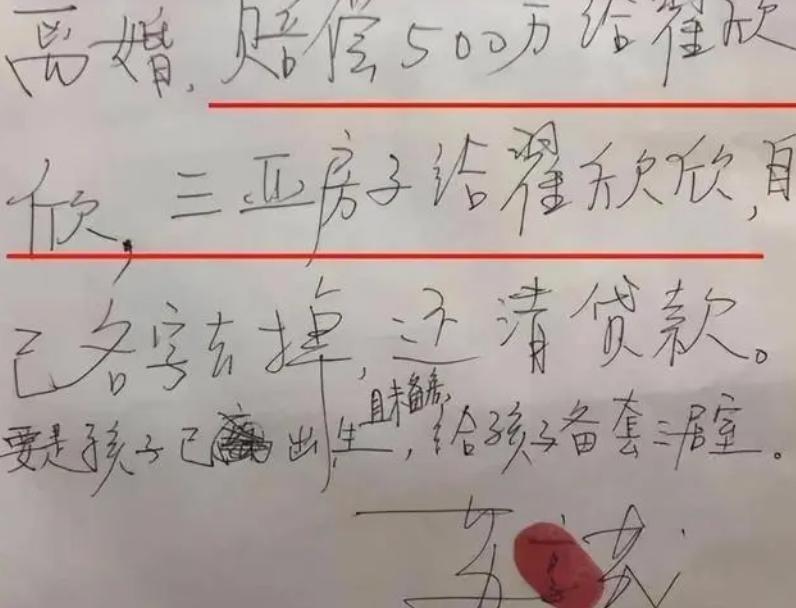 离婚,赔偿500万给翟欣
欣,三亚房子给翟欣欣,自
己名字去掉,还清贷款。
且未备房,
要是孩子已出生,给孩子备套三居室。